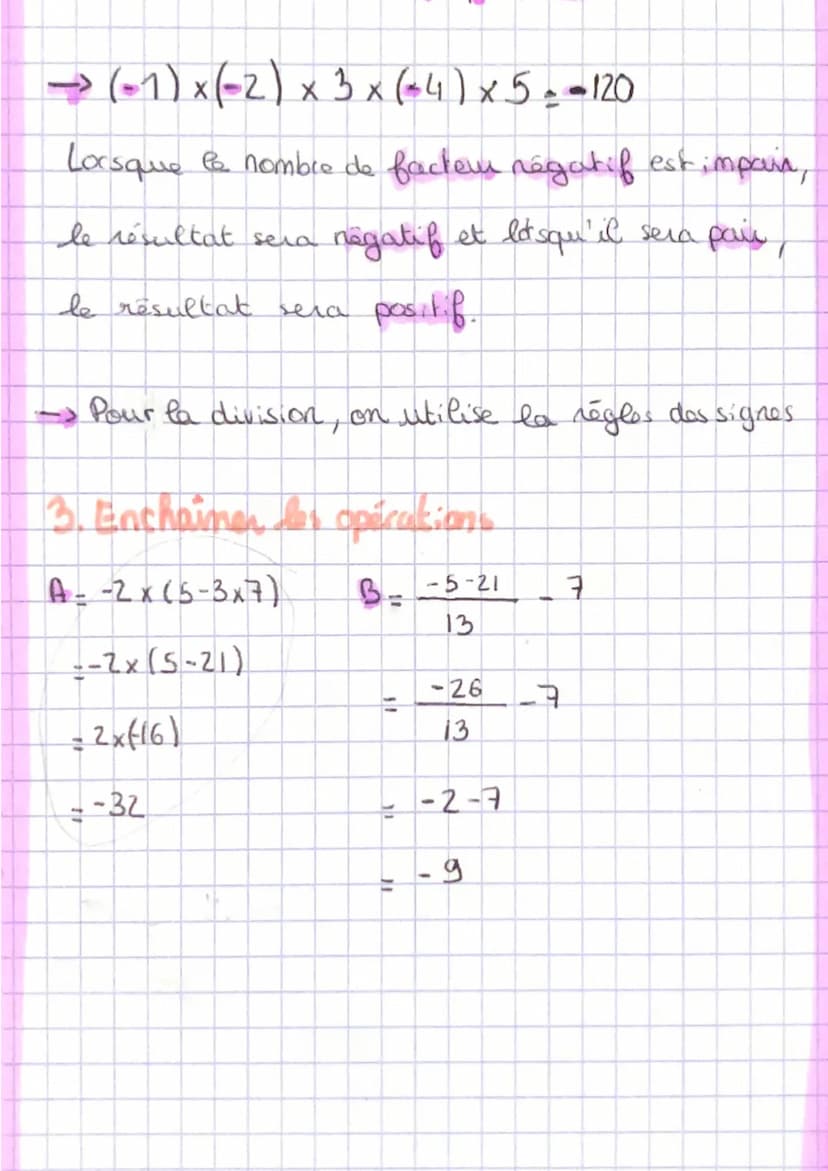 → (-1) x (-2) x 3 x (-4) x 5 = -120
Lorsque le nombre de facteur négatif est impair,
le résultat sera négatif et lorsqu'il sera pair,
le résultat sera positif.
→ Pour la division, on utilise la règles des signes
3. Enchaîner les opérations
A = -2 x (5-3x7)
= -2 x (5-21)
= 2x(-16)
= -32
B = -5-21 / 13 - 7
= -26 / 13 - 7
= -2-7
= -9